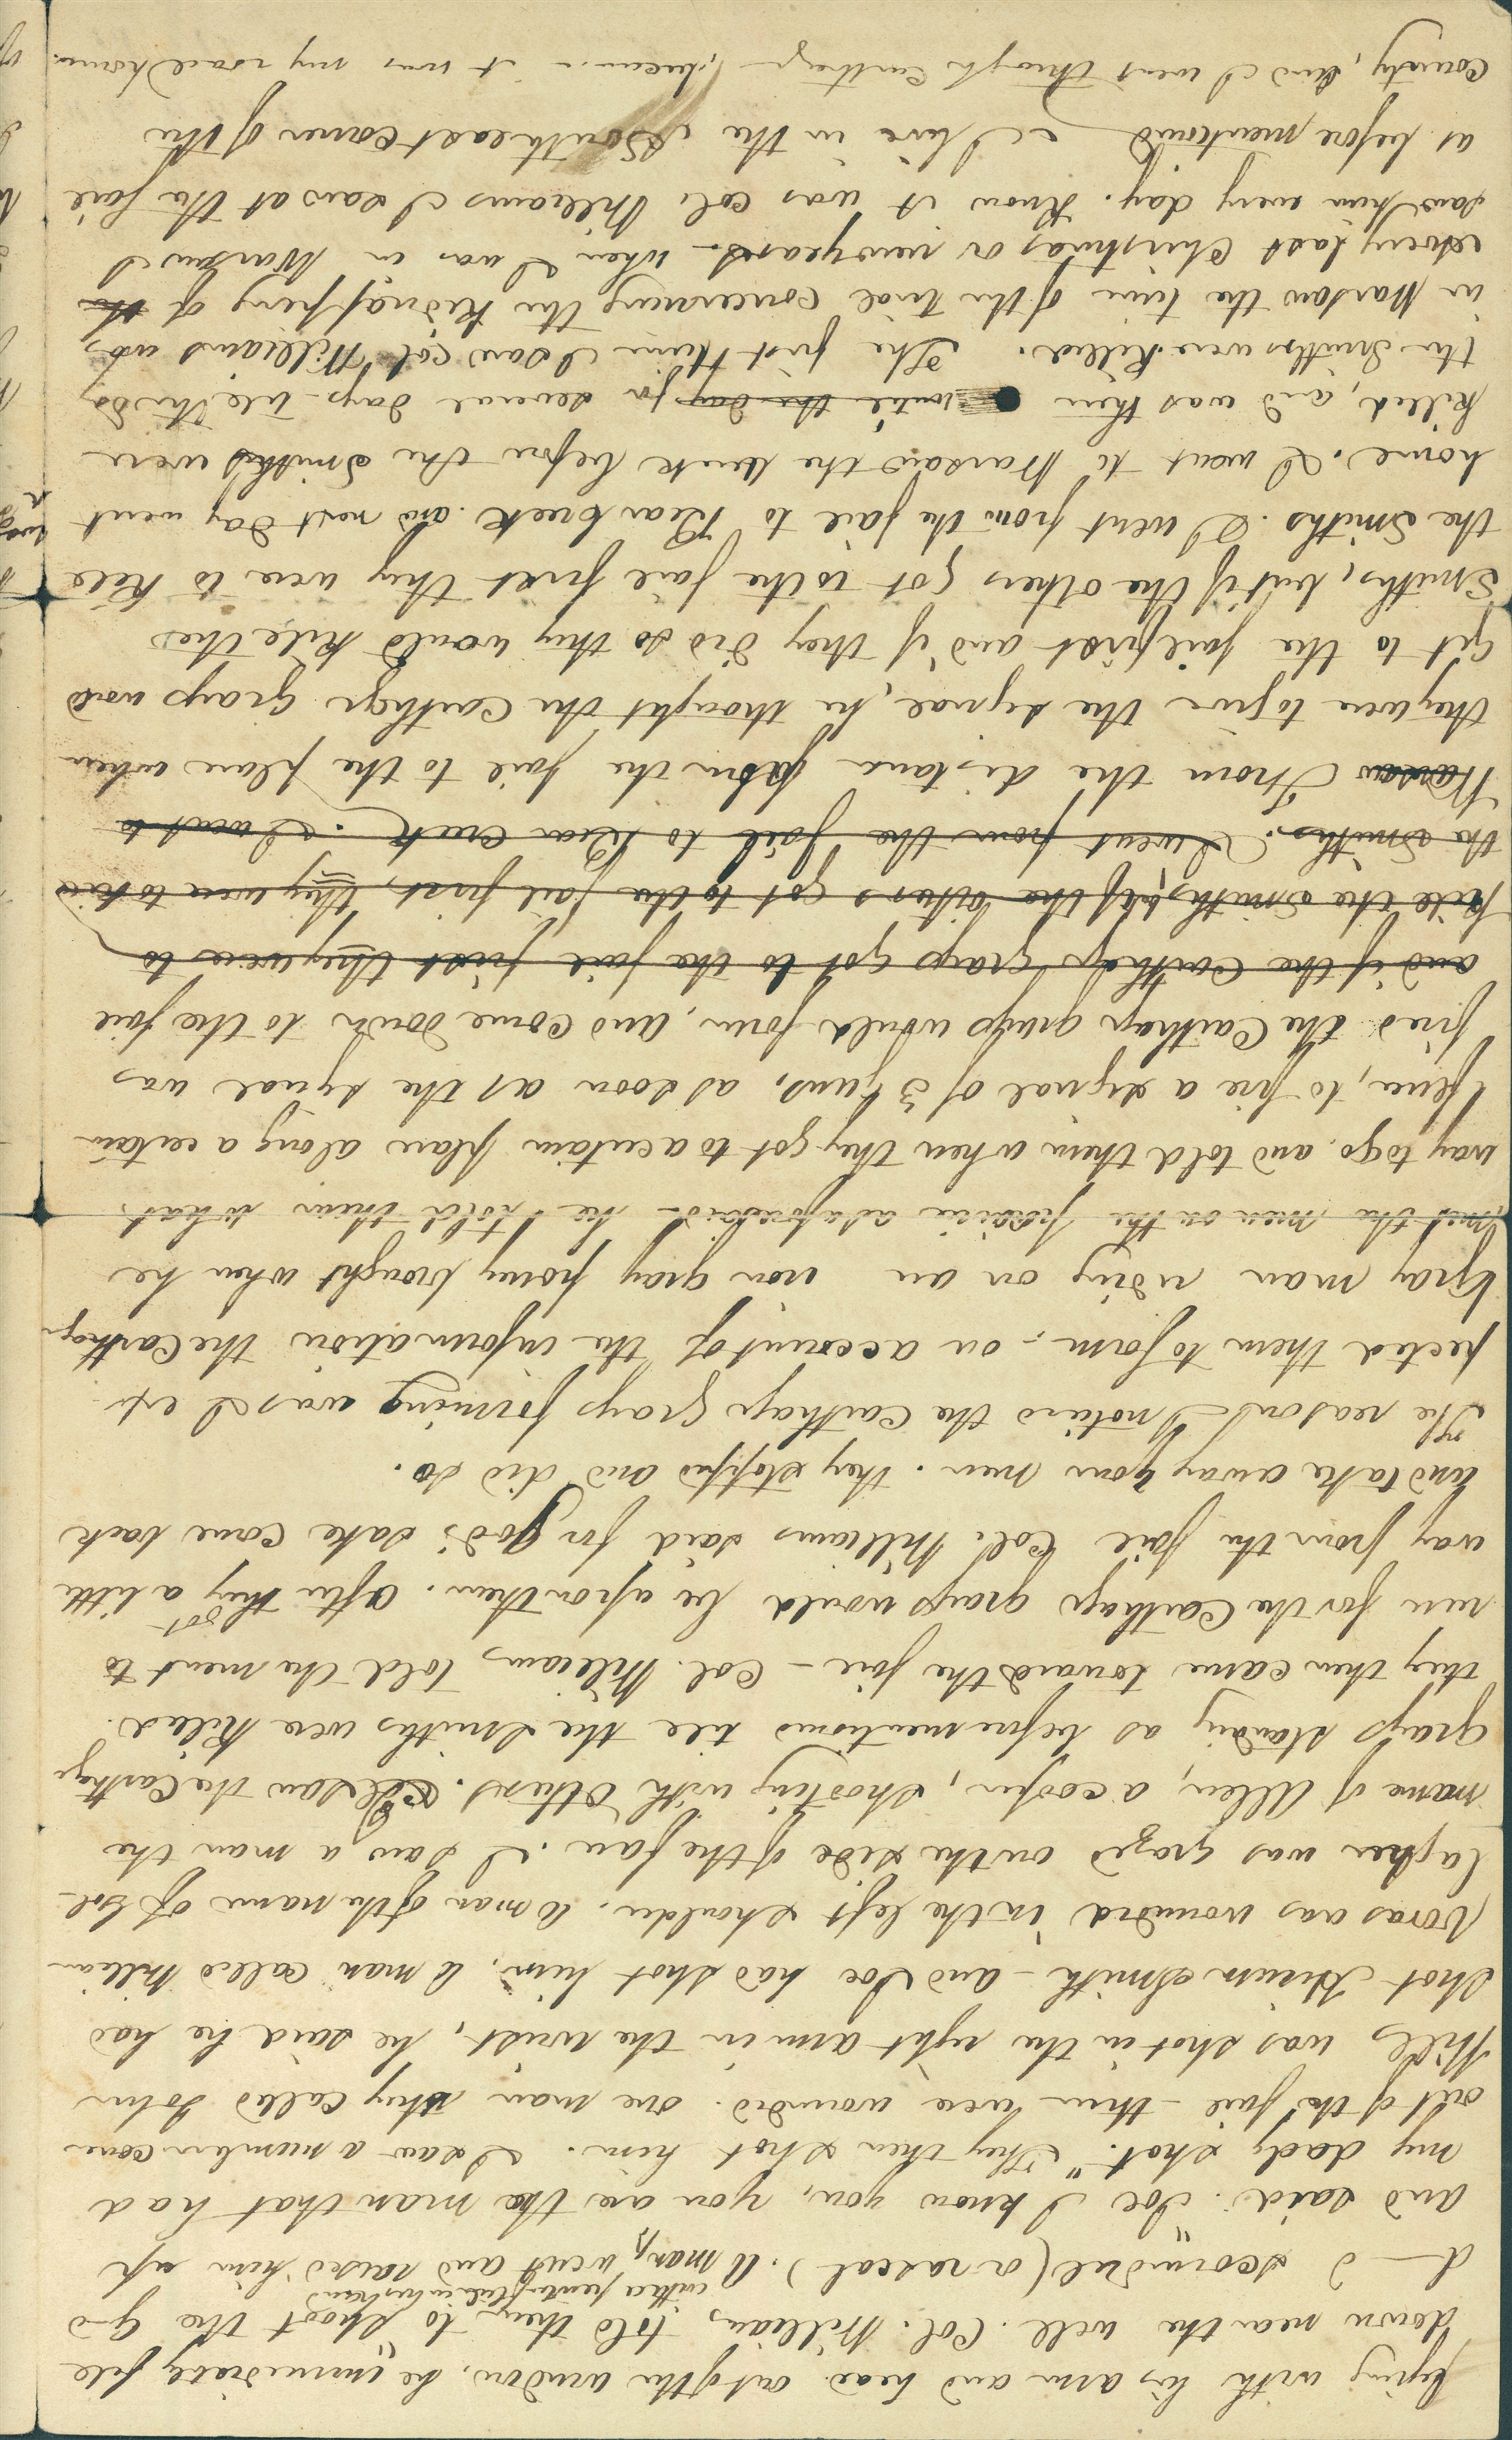 lying with his arm and head out of the window, he immediately fell
down near the well. Col. Williams told them to shoot the G—d
with a penknife in his hand
d——d scoundrel (a rascal). A man, went and raised him up
and said "Joe I know you, you are the man that had
my dady shot." They then shot him. I saw a number come
out of the jail - three were wounded. one man they called John
Wills was shot in the right arm in the wrist, he said he had
shot Hiram Smith - and Joe had shot him, A man called William
Voras was wounded in the left shoulder. A man of the name of Gal-
lagher was grazed on the side of the face. I saw a man the
name of Allen, a cooper, shooting with others. I saw the Carthage
grays standing as before mentioned till the Smiths were killed.
they then came toward the jail - Col. Williams told the men to
run for the Carthage grays would be upon them. After they got a little
way from the jail Col. Williams said for god's sake come back
and take away your men. they stopped and did so.
The reason I noticed the Carthage grays forming was I ex-
pected them to form - on account of the information the Carthage
Gray man riding on an iron gray pony brought when he
met the men on the prairie as aforesaid - he told them what
way to go. and told them when they got to a certain place along a certain
fence, to fire a signal of 3 guns, as soon as the signal was
fired the Carthage grays would form, and come down to the jail
and if the Carthage grays got to the jail first they were to
kill the Smiths, if the others got to the jail first, they were to kill
the Smiths. I went from the jail to Bear Creek. I went to
Warsaw From the distance from the jail to the place when
they were to give the signal, he thought the Carthage Grays would
get to the jail first and if they did so they would kill the
Smiths, but if the others got to the jail first they were to kill
the Smiths. I went from the jail to Bear Creek. and next day went
home. I went to Warsaw the week before the Smiths were
killed, and was there until the day for several days till Thursday
the Smiths were killed. The first time I saw Col Williams was
in Warsaw the time of the trial concerning the Kidnapping of the
Avery last Christmas or newyears - when I was in Warsaw I
saw him every day. Know it was Col. Williams I saw at the jail
as before mentioned I live in the South east corner of the
county, and I went through Carthage it was my road home.